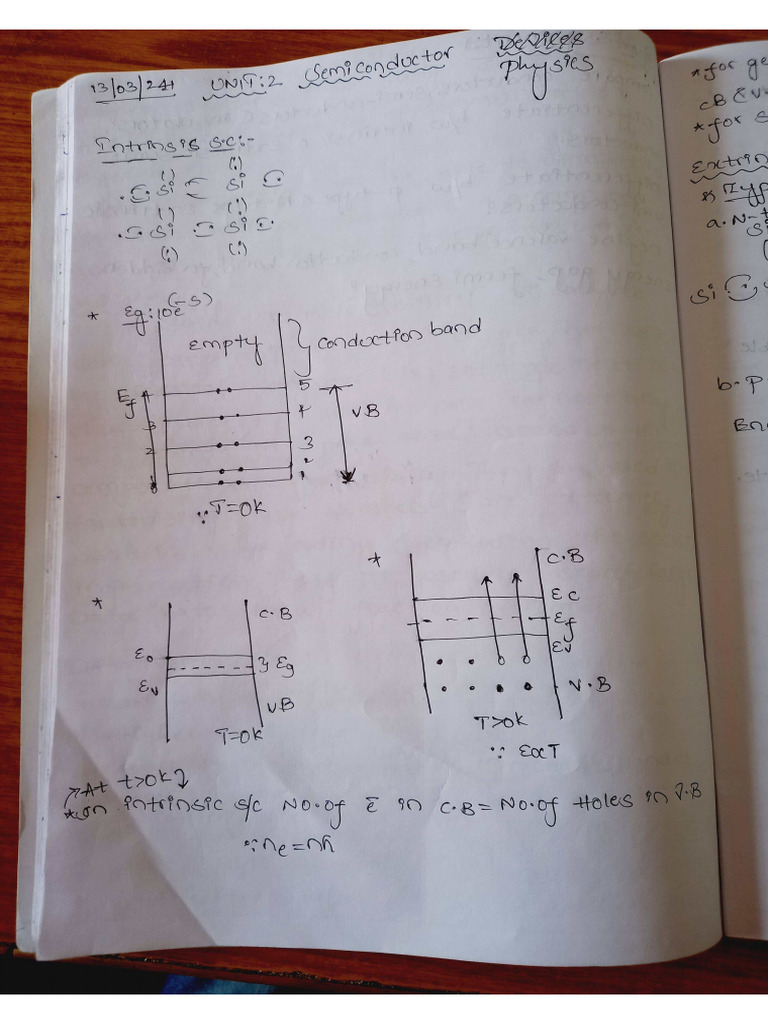 13/03/24 UNIT:2 Semiconductor Devices
Physics
Intrinsis s.c:-
(:) (:)
Si Si
(:) (:)
Si Si
(:) (:)
* Eg: 10e(-s)
Empty } conduction band
Ef 5
4 VB
3 3
2 2
1
∵ T=0K
* C.B
Ec
Ef
Ev
V.B
T>0K
∵ E∝T
* C.B
Eo } Eg
Ev
VB
T=0K
→ At t>0K
* on intrinsic s/c No.of ē in C.B = No.of Holes in V.B
∵ ne=nh
* for ge
CB & V
* for s
Extrin
Typ
a. N-t
Si
Si
b. P
En